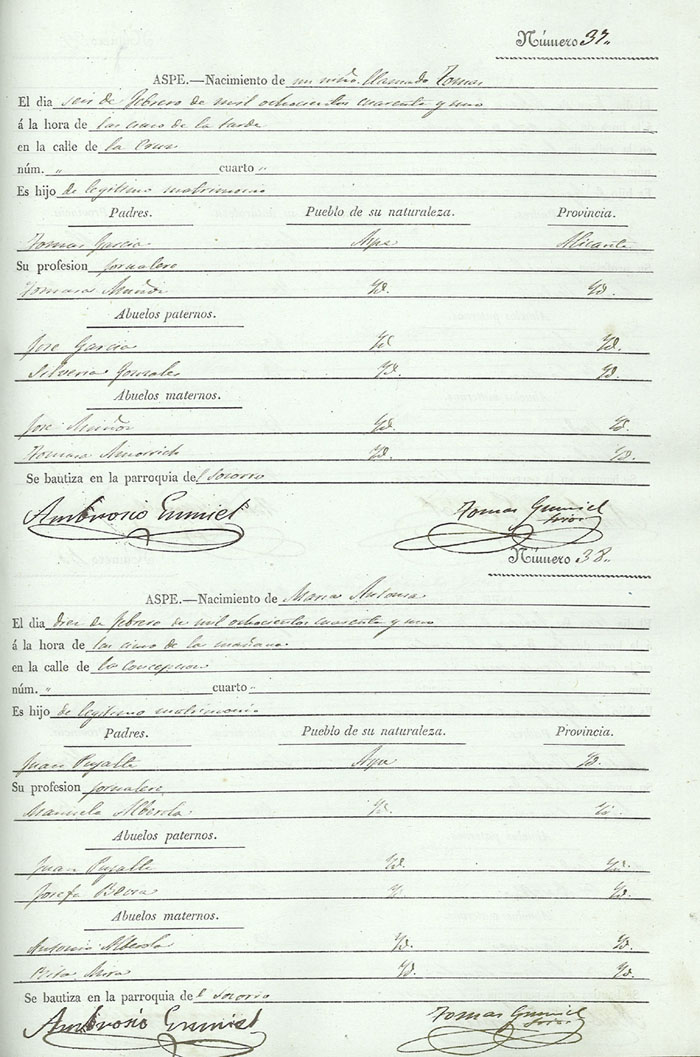 Número 37.
ASPE.—Nacimiento de un niño llamado Tomas
El dia seis de febrero de mil ochocientos cuarenta y uno
á la hora de las cinco de la tarde
en la calle de la Cruz
núm. " cuarto "
Es hijo de legitimo matrimonio
Padres. Pueblo de su naturaleza. Provincia.
Tomas Garcia Aspe Alicante
Su profesion jornalero
Tomasa Muñoz Yd. Yd.
Abuelos paternos.
Jose Garcia Yd. Yd.
Silveria Gonzales Yd. Yd.
Abuelos maternos.
Jose Muñoz Yd. Yd.
Tomasa Yd. Yd.
Se bautiza en la parroquia del Socorro
Ambrosio Gumiel Tomas Gumiel
Número 38.
ASPE.—Nacimiento de Maria Antonia
El dia diez de febrero de mil ochocientos cuarenta y uno
á la hora de las cinco de la mañana
en la calle de la Concepcion
núm. " cuarto "
Es hijo de legitimo matrimonio
Padres. Pueblo de su naturaleza. Provincia.
Juan Pujalte Aspe Yd.
Su profesion jornalero
Manuela Alberola Yd. Yd.
Abuelos paternos.
Juan Pujalte Yd. Yd.
Josefa Y. Yd.
Abuelos maternos.
Antonio Alberola Yd. Yd.
Rita Mira Yd. Yd.
Se bautiza en la parroquia del Socorro
Ambrosio Gumiel Tomas Gumiel